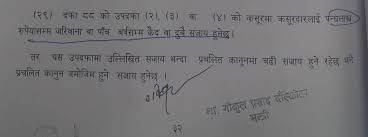 (२९) दफा ८८ को उपदफा (२), (३) वा (४) को कसूरमा कसूरदारलाई पन्ध्रलाख
रुपैयासम्म जरिवाना वा पाँच वर्षसम्म कैद वा दुवै सजाय हुनेछ।
तर यस उपदफामा उल्लिखित सजाय भन्दा प्रचलित कानूनमा बढी सजाय हुने रहेछ भने
प्रचलित कानून बमोजिम हुने सजाय हुनेछ।
ना. गोकुल प्रसाद बाँस्कोटा
मन्त्री
३२